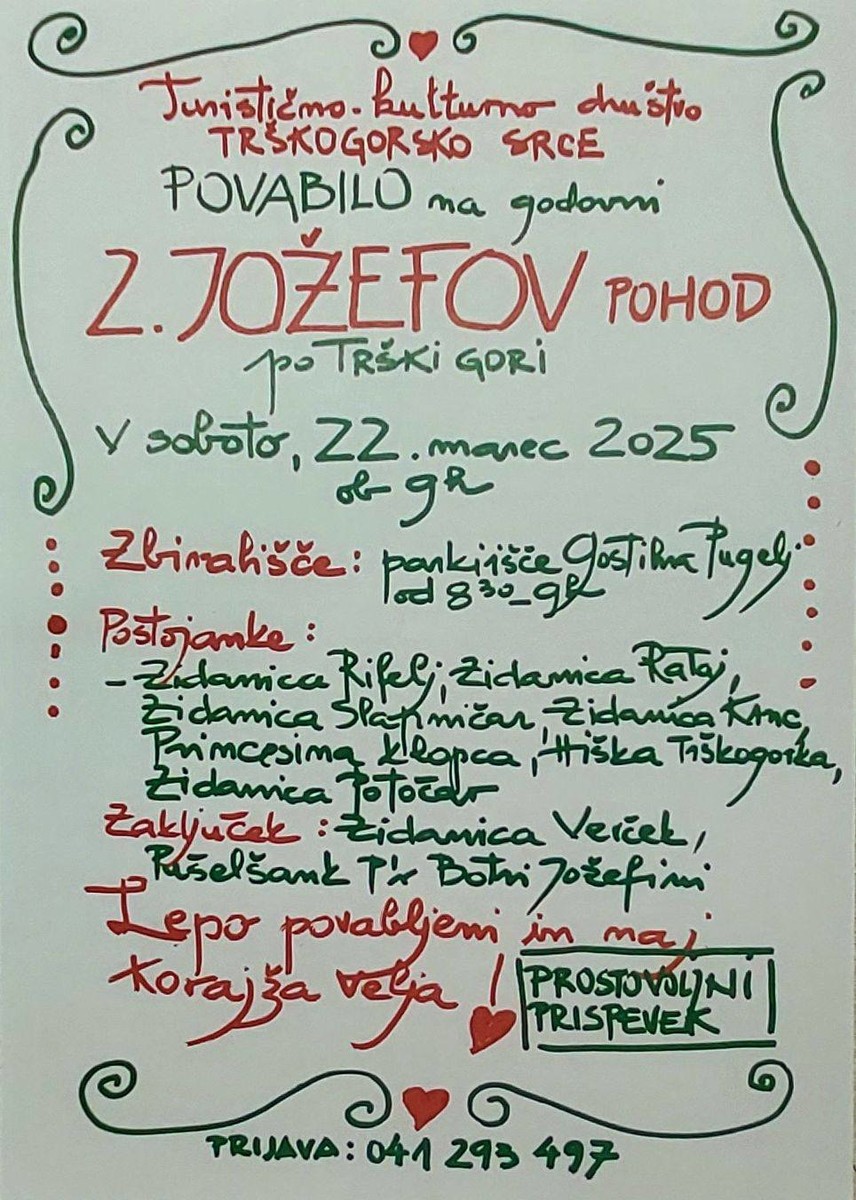 Turistično-kulturno društvo
TRŠKOGORSKO SRCE
POVABILO na godovni
2. JOŽEFOV POHOD
po TRŠKI GORI
V soboto, 22. marec 2025
ob 9h
Zbirališče: parkirišče Gostilna Pugelj
od 8³⁰-9h
Postojanke:
- Zidanica Rifelj, Zidanica Rataj,
Zidanica Slapničar, Zidanica Kranc,
Princesina klopca, Hiška Trškogorka,
Zidanica Potočar
Zaključek: Zidanica Verček,
Pušelšank P'r Botri Jožefini
Lepo povabljeni in naj
korajža velja!
PROSTOVOLJNI
PRISPEVEK
PRIJAVA: 041 293 497